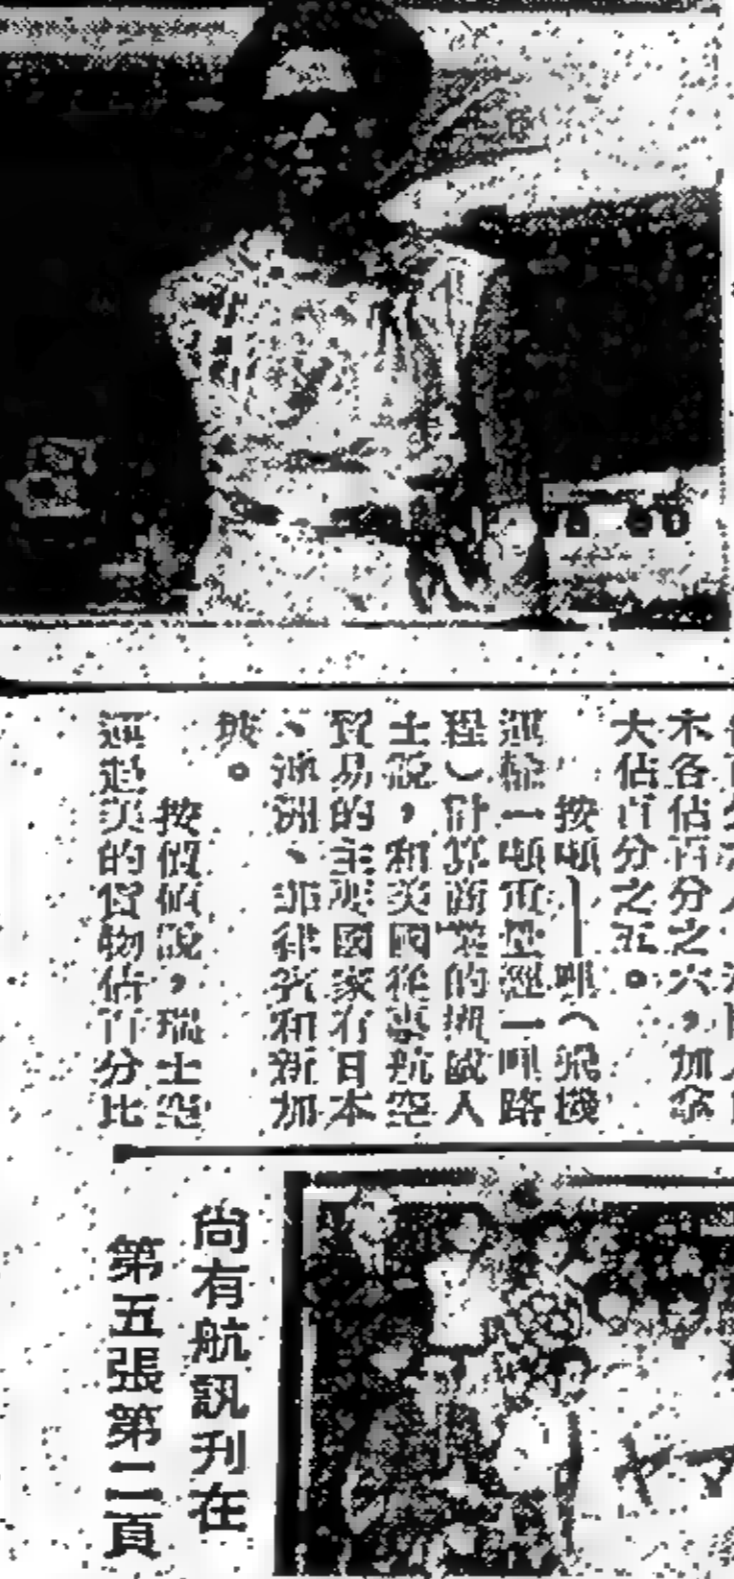 木各佔百分之六，加拿
大佔百分之五。
按噸—哩（飛機
運輸一噸重量經一哩路
程）計算商業的挪威人
士說，和美國從事航空
貿易的主要國家有日本
、澳洲、菲律賓和新加
坡。
按價值說，瑞士空
運起美的貨物佔百分比
尚有航訊刊在
第五張第二頁